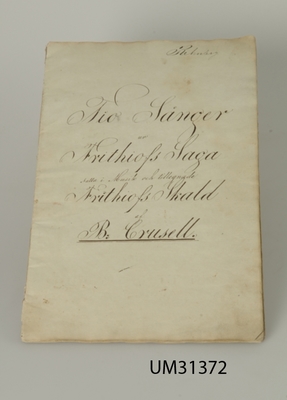 Tio Sånger
ur
Frithiofs Saga
satte i Musik och tillegnade
Frithiofs Skald
af
B. Crusell.
UM31372